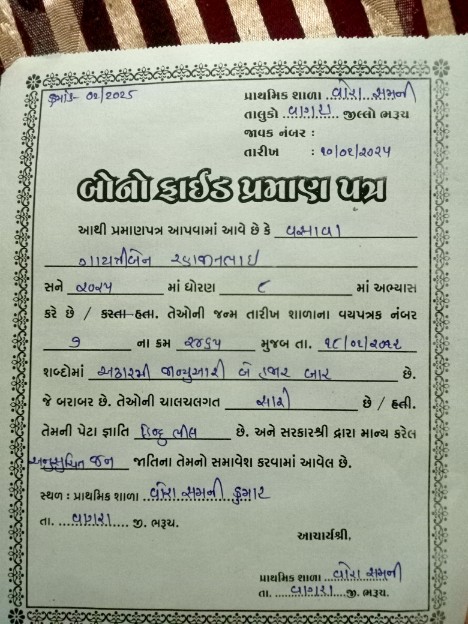 ક્રમાંક- 02/2025
પ્રાથમિક શાળા વોરા સમની
તાલુકો વાગરા જીલ્લો ભરૂચ
જાવક નંબર :
તારીખ : ૧૦/૦૬/૨૦૨૫
બોનોફાઈડ પ્રમાણ પત્ર
આથી પ્રમાણપત્ર આપવામાં આવે છે કે વસાવા
ગાયત્રીબેન
સને ૨૦૨૫ માં ધોરણ ૮ માં અભ્યાસ
કરે છે / કરતા હતા. તેઓની જન્મ તારીખ શાળાના વયપત્રક નંબર
૭ ના ક્રમ ૨૪૬૫ મુજબ તા. ૧૮/૦૧/૨૦૧૨
શબ્દોમાં અઢારમી જાન્યુઆરી બે હજાર બાર છે.
જે બરાબર છે. તેઓની ચાલચલગત સારી છે / હતી.
તેમની પેટા જ્ઞાતિ હિન્દુ ભીલ છે. અને સરકારશ્રી દ્વારા માન્ય કરેલ
અનુસુચિત જન જાતિના તેમનો સમાવેશ કરવામાં આવેલ છે.
સ્થળ : પ્રાથમિક શાળા વોરા સમની કુમાર
તા. વાગરા જી. ભરૂચ.
આચાર્યશ્રી,
પ્રાથમિક શાળા વોરા સમની
તા. વાગરા જી. ભરૂચ.